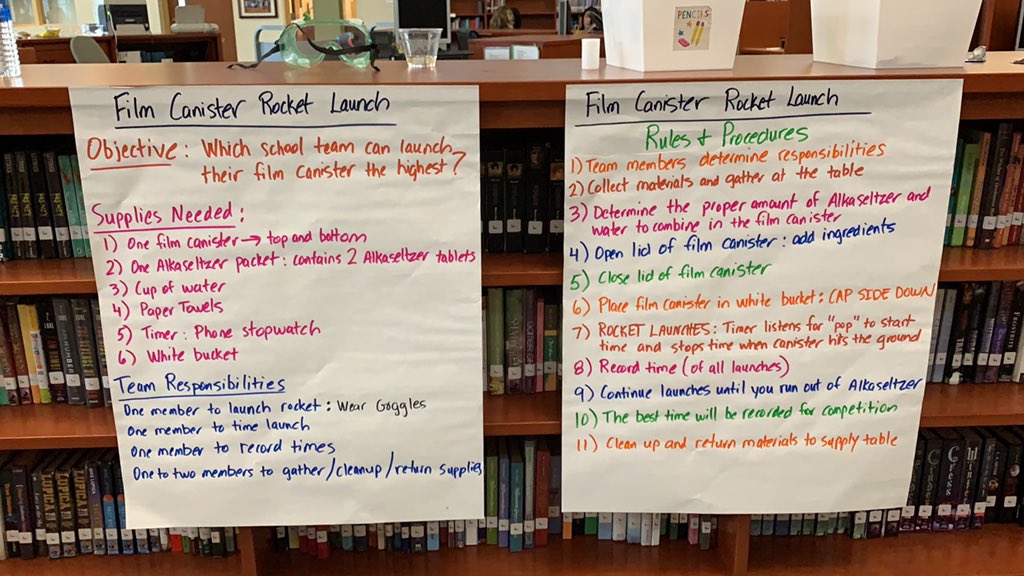 PENCILS
Film Canister Rocket Launch
Objective: Which school team can launch
their film canister the highest?
Supplies Needed:
1) One film canister → top and bottom
2) One Alkaseltzer packet: contains 2 Alkaseltzer tablets
3) Cup of water
4) Paper Towels
5) Timer: Phone stopwatch
6) White bucket
Team Responsibilities
One member to launch rocket: Wear Goggles
One member to time launch
One member to record times
One to two members to gather/cleanup/return supplies
Film Canister Rocket Launch
Rules & Procedures
1) Team members determine responsibilities
2) Collect materials and gather at the table
3) Determine the proper amount of Alkaseltzer and
water to combine in the film canister
4) Open lid of film canister: add ingredients
5) Close lid of film canister
6) Place film canister in white bucket: CAP SIDE DOWN
7) ROCKET LAUNCHES: Timer listens for "pop" to start
time and stops time when canister hits the ground
8) Record time (of all launches)
9) Continue launches until you run out of Alkaseltzer
10) The best time will be recorded for competition
11) Clean up and return materials to supply table